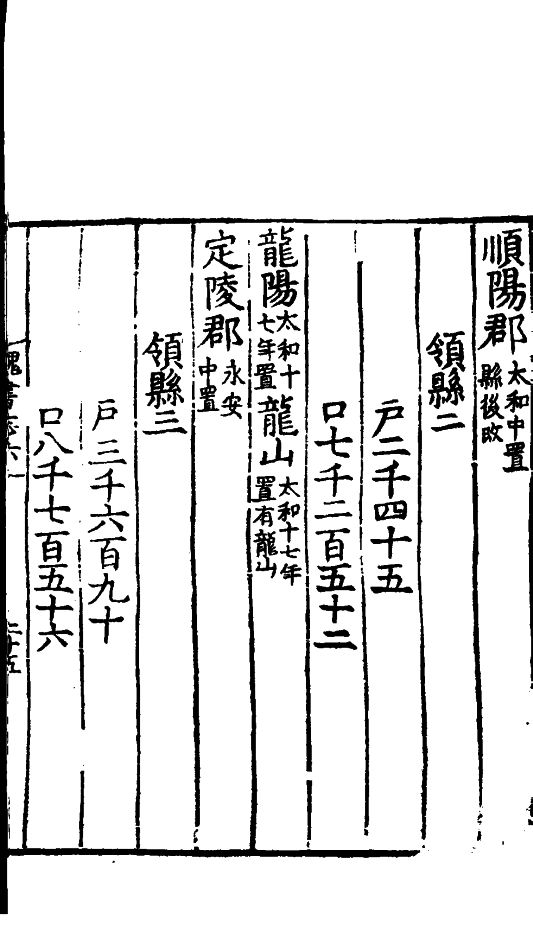 順陽郡太和中置縣後改
領縣二
戶二千四十五
口七千二百五十二
龍陽太和十七年置龍山太和十七年置有龍山
定陵郡永安中置
領縣三
戶三千六百九十
口八千七百五十六
魏書志六
二十五